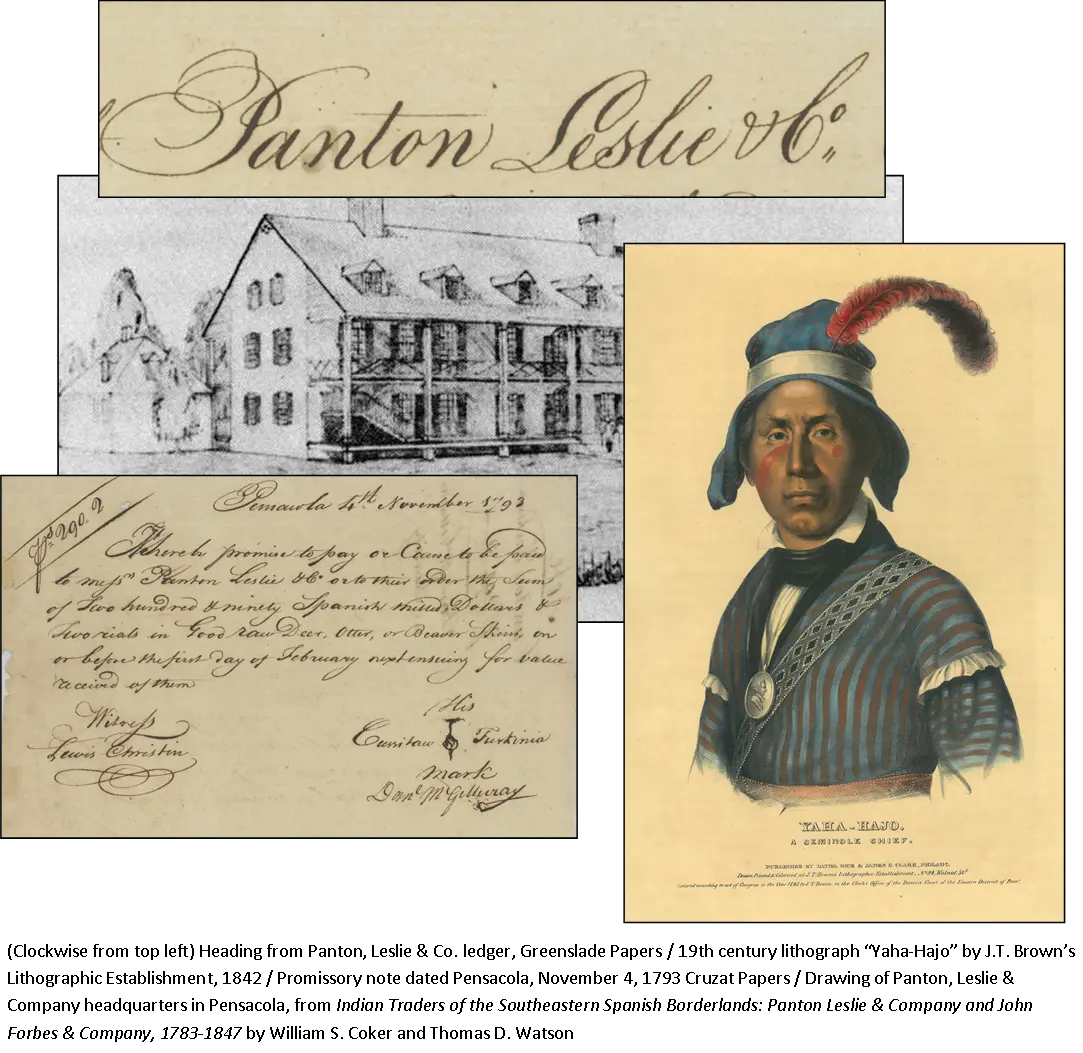 Panton Leslie & Co
Pensacola 4th November 1793
Ps 290. 2
I hereby promise to pay or Cause to be paid
to messrs Panton Leslie & Co or to their order the Sum
of Two hundred & ninety Spanish milled Dollars &
Two rials in Good raw Deer, Otter, or Beaver Skins, on
or before the first day of February next ensuing for value
received of them
Witness
Lewis Christin
His
Cussitaw Turkinia
mark
Danl McGillivray
YAHA-HAJO.
A SEMINOLE CHIEF.
PUBLISHED BY DANIEL RICE & JAMES G. CLARK, PHILADA.
Drawn Printed & Coloured at J. T. Bowen's Lithographic Establishment, No. 94, Walnut St.
Entered according to act of Congress in the Year 1842 by J T Bowen in the Clerks Office of the District Court of the Eastern District of Penna.
(Clockwise from top left) Heading from Panton, Leslie & Co. ledger, Greenslade Papers / 19th century lithograph “Yaha-Hajo” by J.T. Brown’s
Lithographic Establishment, 1842 / Promissory note dated Pensacola, November 4, 1793 Cruzat Papers / Drawing of Panton, Leslie &
Company headquarters in Pensacola, from Indian Traders of the Southeastern Spanish Borderlands: Panton Leslie & Company and John
Forbes & Company, 1783-1847 by William S. Coker and Thomas D. Watson